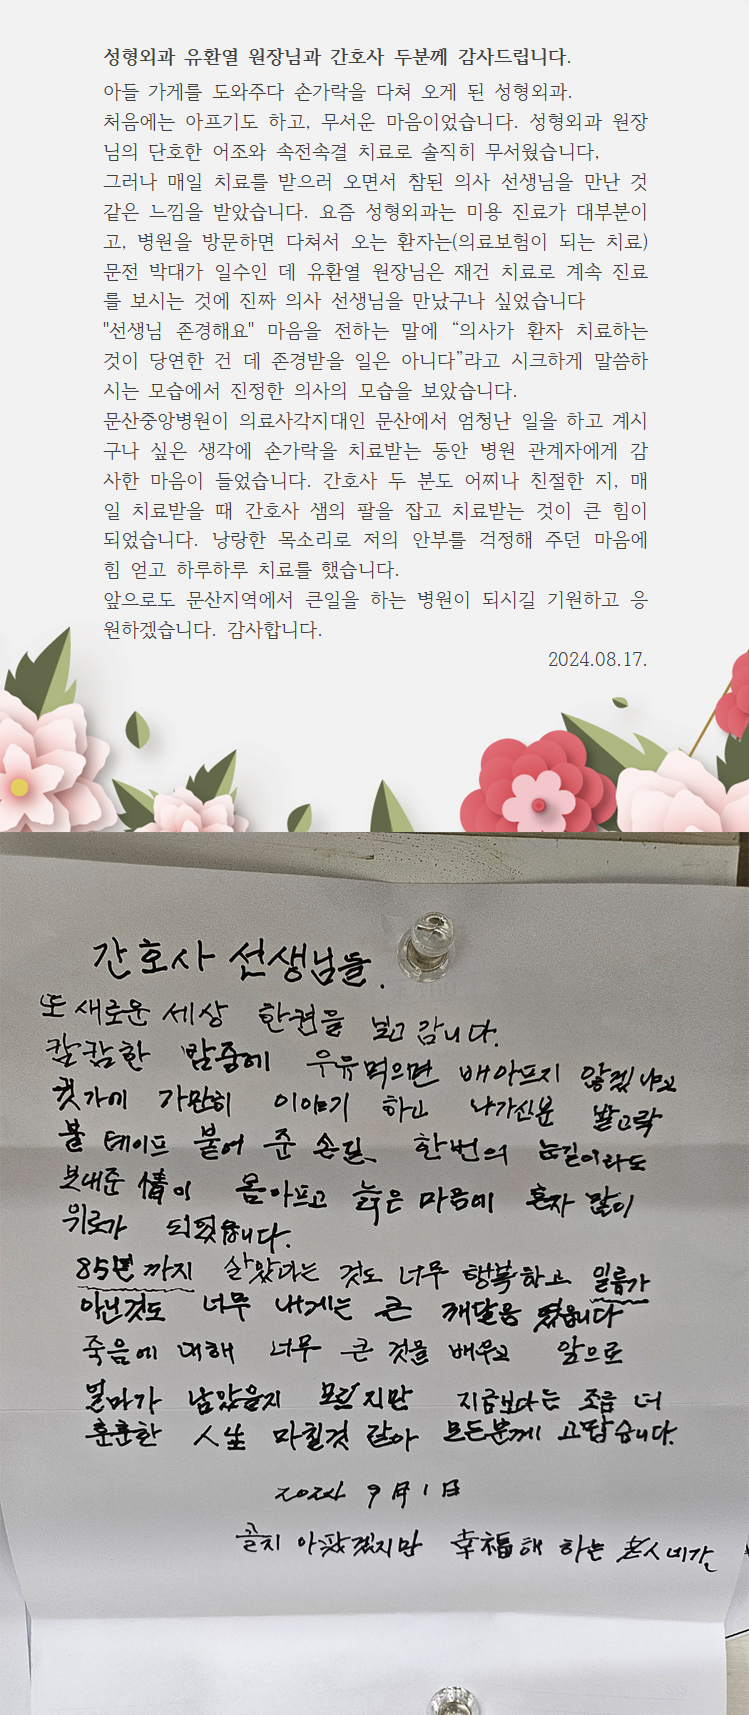 성형외과 유환열 원장님과 간호사 두분께 감사드립니다.
아들 가게를 도와주다 손가락을 다쳐 오게 된 성형외과.
처음에는 아프기도 하고, 무서운 마음이었습니다. 성형외과 원장
님의 단호한 어조와 속전속결 치료로 솔직히 무서웠습니다,
그러나 매일 치료를 받으러 오면서 참된 의사 선생님을 만난 것
같은 느낌을 받았습니다. 요즘 성형외과는 미용 진료가 대부분이
고, 병원을 방문하면 다쳐서 오는 환자는(의료보험이 되는 치료)
문전 박대가 일수인 데 유환열 원장님은 재건 치료로 계속 진료
를 보시는 것에 진짜 의사 선생님을 만났구나 싶었습니다
"선생님 존경해요" 마음을 전하는 말에 “의사가 환자 치료하는
것이 당연한 건 데 존경받을 일은 아니다”라고 시크하게 말씀하
시는 모습에서 진정한 의사의 모습을 보았습니다.
문산중앙병원이 의료사각지대인 문산에서 엄청난 일을 하고 계시
구나 싶은 생각에 손가락을 치료받는 동안 병원 관계자에게 감
사한 마음이 들었습니다. 간호사 두 분도 어찌나 친절한 지, 매
일 치료받을 때 간호사 샘의 팔을 잡고 치료받는 것이 큰 힘이
되었습니다. 낭랑한 목소리로 저의 안부를 걱정해 주던 마음에
힘 얻고 하루하루 치료를 했습니다.
앞으로도 문산지역에서 큰일을 하는 병원이 되시길 기원하고 응
원하겠습니다. 감사합니다.
2024.08.17.
간호사 선생님들.
또 새로운 세상 한편을 보고 갑니다.
캄캄한 밤중에 우유먹으면 배아프지 않겠냐고
귓가에 가만히 이야기 하고 나가신분 발고락
볼 테이프 붙어 준 손길, 한번의 눈길이라도
보내준 情이 몸아프고 늙은 마음에 혼자 많이
위로가 되었읍니다.
85년까지 살았다는 것도 너무 행복하고 일류가
아닌것도 너무 내게는 큰 깨달음 이였읍니다
죽음에 대해 너무 큰 것을 배우고 앞으로
얼마가 남았을지 모르지만 지금보다는 조금 더
훈훈한 人生 마칠것 같아 모든분께 고맙습니다.
2024 9月 1日
골치 아팠겠지만 幸福해 하는 老人네가